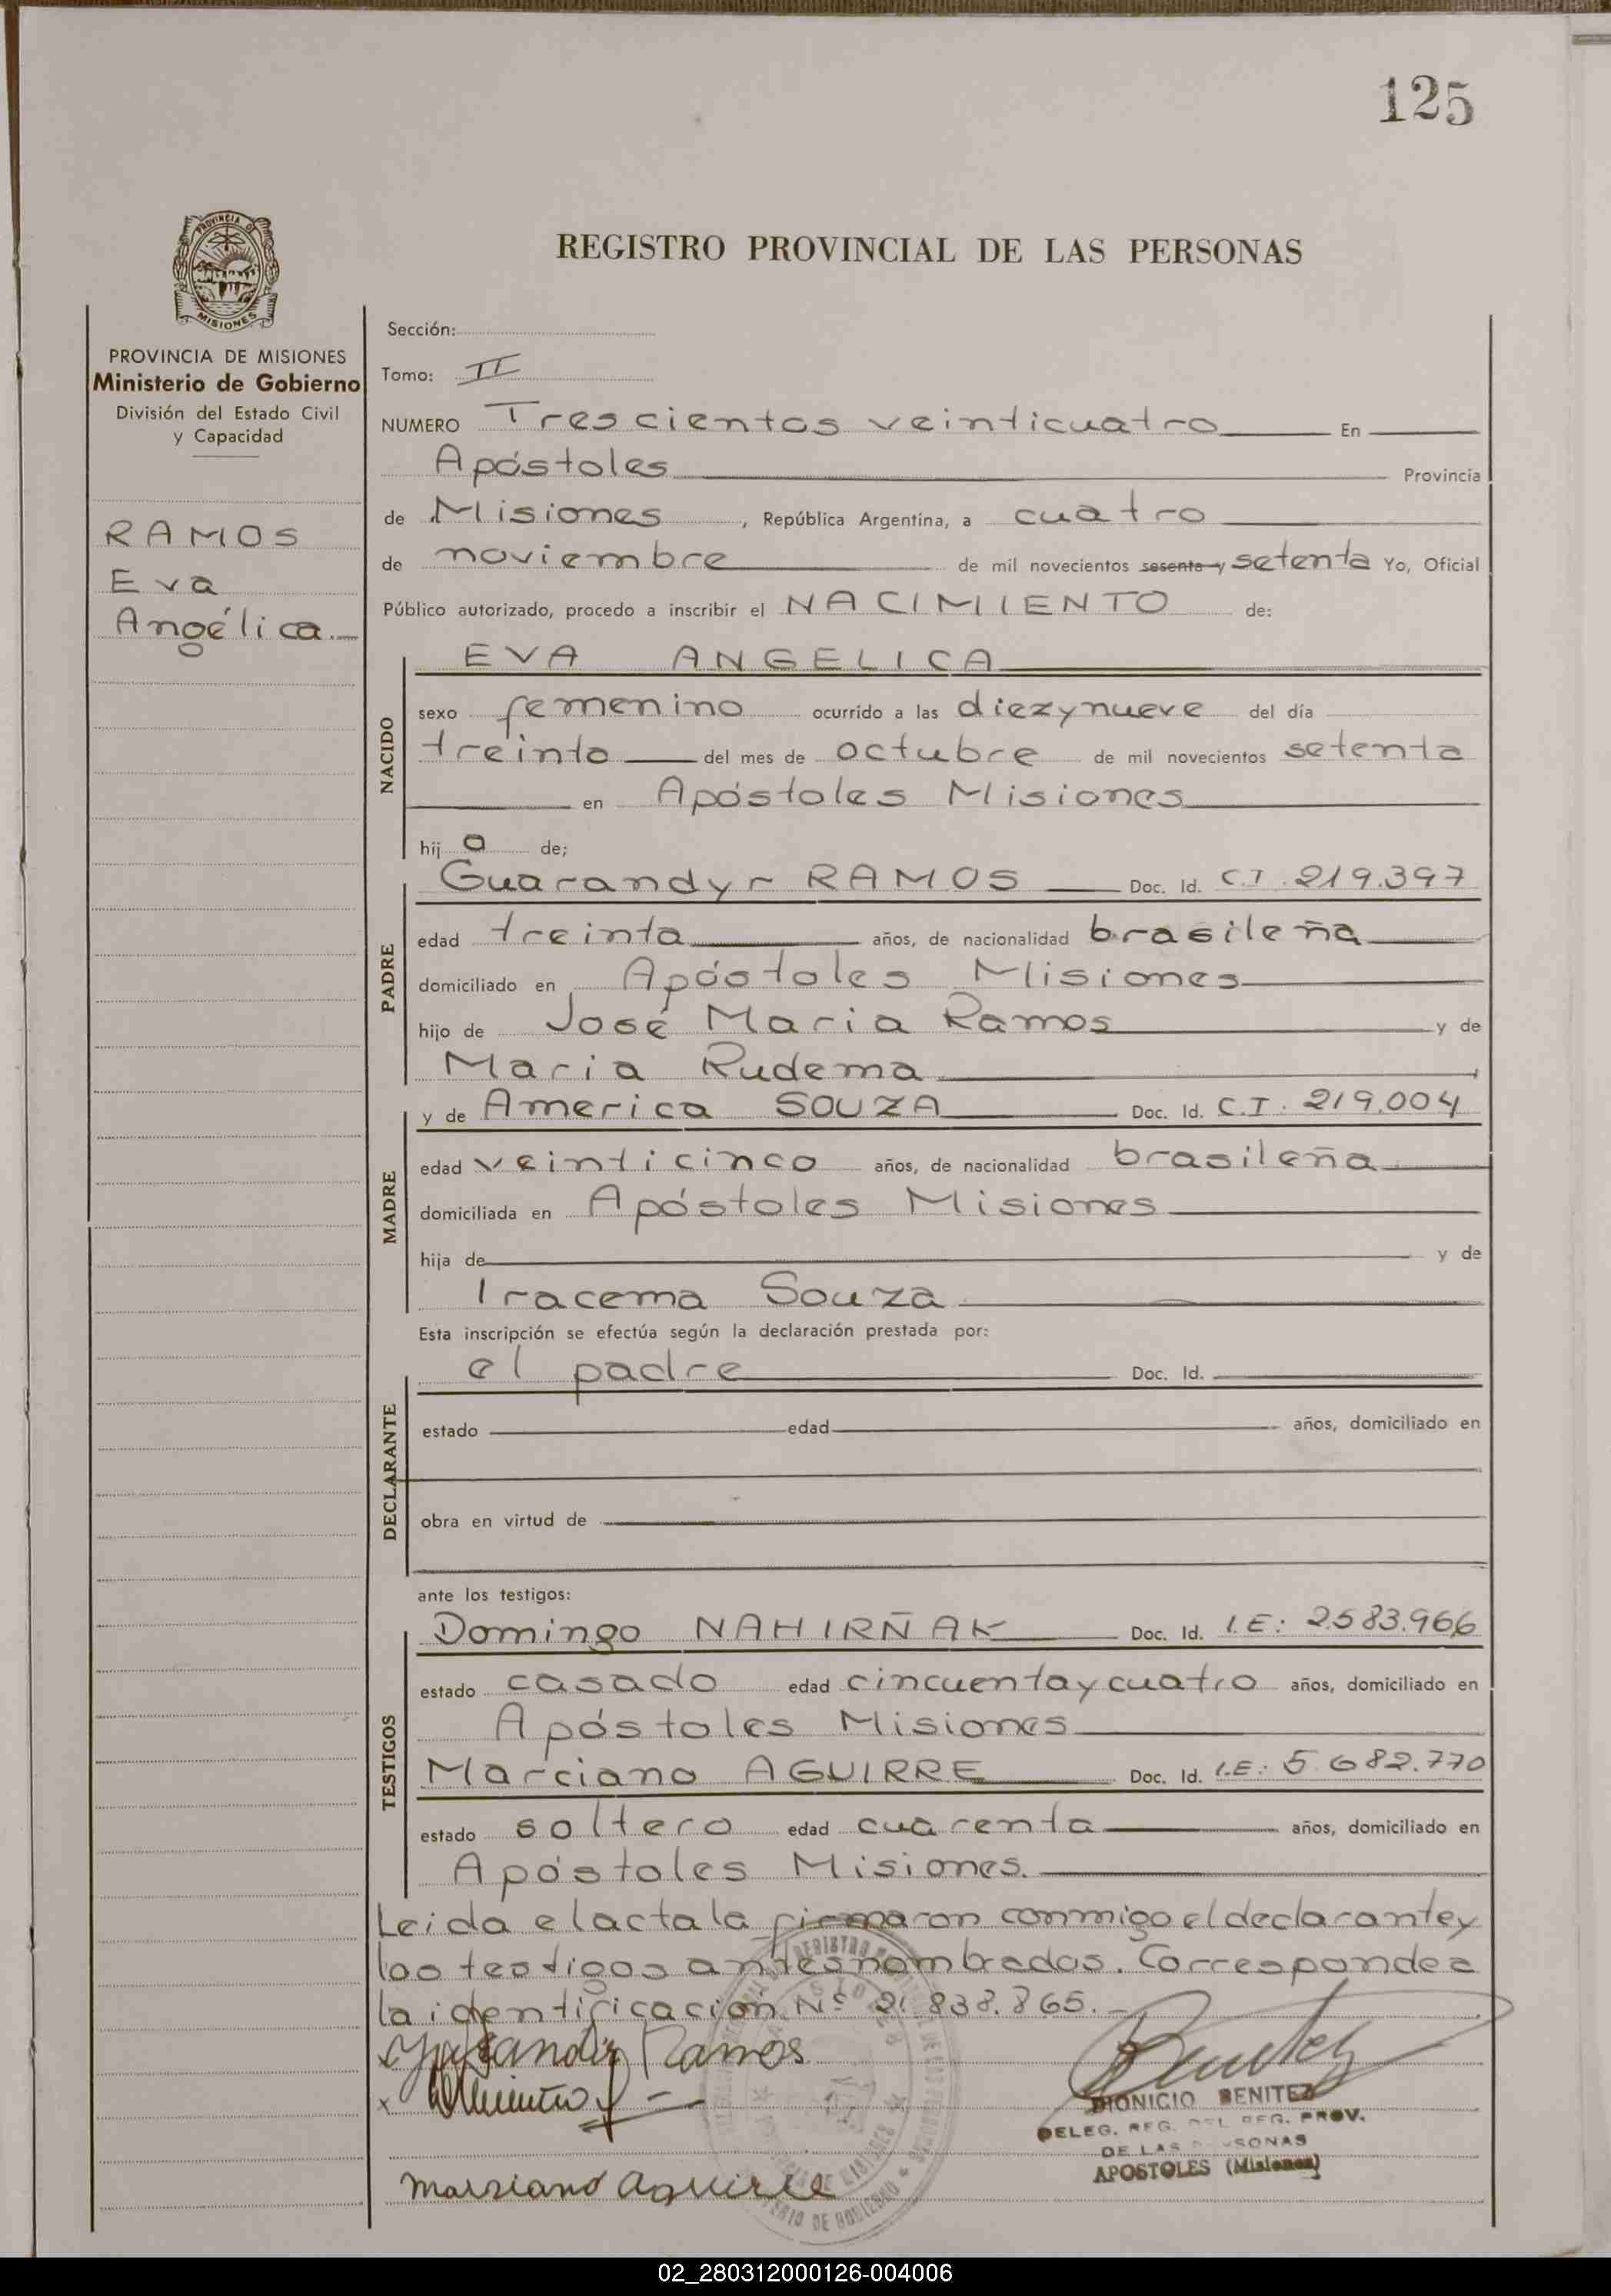 125
PROVINCIA DE MISIONES
REGISTRO PROVINCIAL DE LAS PERSONAS
PROVINCIA DE MISIONES
Ministerio de Gobierno
División del Estado Civil
y Capacidad
RAMOS
Eva
Angélica.
Sección:
Tomo: II
NUMERO Trescientos veinticuatro En
Apóstoles Provincia
de Misiones, República Argentina, a cuatro
de noviembre de mil novecientos sesenta y setenta Yo, Oficial
Público autorizado, procedo a inscribir el NACIMIENTO de:
NACIDO
EVA ANGELICA
sexo femenino ocurrido a las diezynueve del día
treinta del mes de octubre de mil novecientos setenta
en Apóstoles Misiones
hij a de;
PADRE
Guarandyr RAMOS Doc. Id. C.I. 219.397
edad treinta años, de nacionalidad brasileña
domiciliado en Apóstoles Misiones
hijo de José Maria Ramos y de
Maria Rudema
MADRE
y de America SOUZA Doc. Id. C.I. 219.004
edad veinticinco años, de nacionalidad brasileña
domiciliada en Apóstoles Misiones
hija de y de
Iracema Souza
Esta inscripción se efectúa según la declaración prestada por:
DECLARANTE
el padre Doc. Id.
estado edad años, domiciliado en
obra en virtud de
ante los testigos:
TESTIGOS
Domingo NAHIRÑAK Doc. Id. I.E: 2583.966
estado casado edad cincuenta y cuatro años, domiciliado en
Apóstoles Misiones
Marciano AGUIRRE Doc. Id. I.E: 5.682.770
estado soltero edad cuarenta años, domiciliado en
Apóstoles Misiones.
Leida el acta la firmaron conmigo el declarante y
los testigos antes nombrados. Corresponde a
la identificación Nº 21.838.865.-
Ramos
Marsiano Aguirre
DIONICIO BENITEZ
DELEG. REG. DEL REG. PROV.
DE LAS PERSONAS
APOSTOLES (Misiones)
02_280312000126-004006